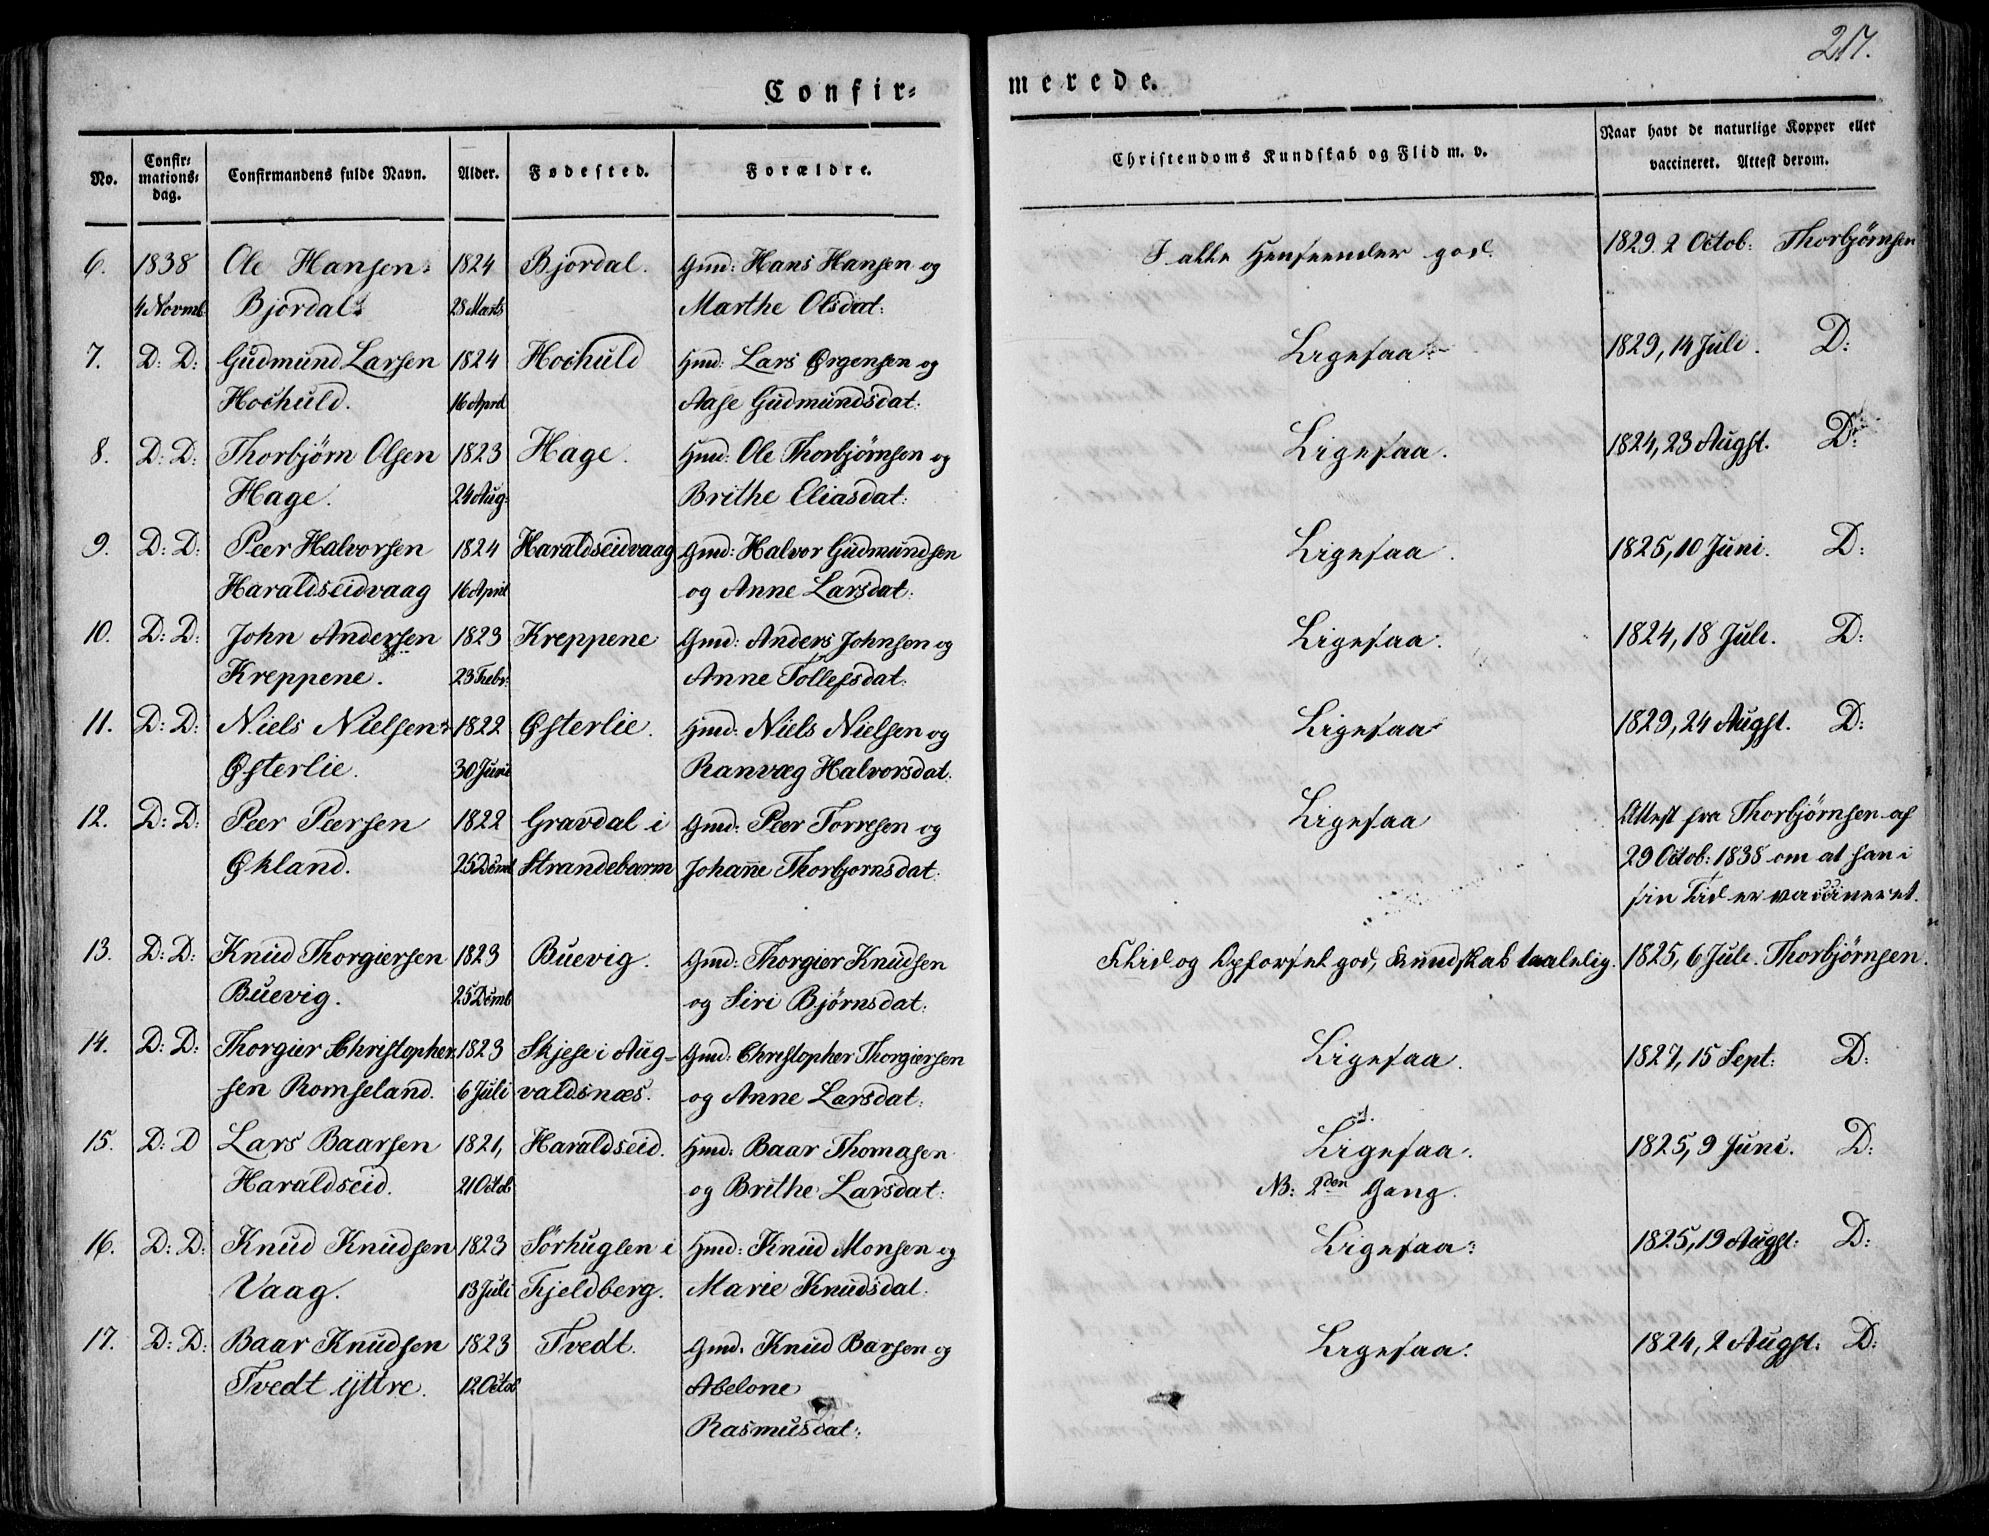 217.
Confir-
merede.
No.
Confir-
mations-
dag.
Confirmandens fulde Navn.
Alder.
Fødested.
Forældre.
Christendoms Kundskab og Flid m. v.
Naar havt de naturlige Kopper eller
vaccineret. Attest derom.
6. 1838 Ole Hansen 1824 Bjordal. Gmd: Hans Hansen og I alle Henseender god. 1829. 2 Octob: Thorbjørnsen
4 Novmb: Bjordal. 28 Marts Marthe Olsdat:
7. D: D: Gudmund Larsen 1824 Hochuld Hmd: Lars Ørgensen og Ligesaa. 1829, 14 Juli. D:
Hochuld. 16 April Aase Gudmundsdat:
8. D: D: Thorbjørn Olsen 1823 Hage. Hmd: Ole Thorbjørnsen og Ligesaa. 1824, 23 Augst. D:
Hage. 24 Aug: Brithe Eliasdat:
9. D: D: Peer Halvorsen 1824 Haraldseidvaag Gmd: Halvor Gudmundsen Ligesaa. 1825, 10 Juni. D:
Haraldseidvaag 16 April og Anne Larsdat:
10. D: D: John Andersen 1823 Kreppene Gmd: Anders Johnsen og Ligesaa. 1824, 18 Juli. D:
Kreppene. 23 Febr: Anne Tollefsdat:
11. D: D: Niels Nielsen 1822 Østerlie. Hmd: Niels Nielsen og Ligesaa 1829, 24 Augst. D:
Østerlie. 30 Juni Ranvæg Halvorsdat:
12. D: D: Peer Peersen 1822 Gravdal i Gmd: Peer Torresen og Ligesaa Attest fra Thorbjørnsen af
Økland. 25 Decmb Strandebarm Johanne Thorbjornsdat: 29 Octob: 1838 om at han i
sin Tid er vaccineret.
13. D: D: Knud Thorgiersen 1823 Buevig. Gmd: Thorgier Knudsen Flid og Opførsel god, Kundskab taalelig. 1825, 6 Juli. Thorbjørnsen.
Buevig. 25 Decmb og Siri Bjørnsdat:
14. D: D: Thorgier Christopher- 1823 Skjese i Aug- Gmd: Christopher Thorgiersen Ligesaa. 1827, 15 Sept: D:
sen Romseland. 6 Juli valdsnæs. og Anne Larsdat:
15. D: D Lars Baarsen 1821, Haraldseid. Hmd: Baar Thomasen Ligesaa. 1825, 9 Juni. D:
Haraldseid. 21 Octob og Brithe Larsdat: NB: 2den Gang.
16. D: D: Knud Knudsen 1823 Sørhuglen i Hmd: Knud Monsen og Ligesaa: 1825, 19 Augst: D:
Vaag. 13 Juli Fjeldberg. Marie Knudsdat.
17. D: D: Baar Knudsen 1823 Tvedt. Gmd: Knud Barsen og Ligesaa. 1824, 2 Augst: D:
Tvedt yttre. 12 Octob Abelone
Rasmusdat: